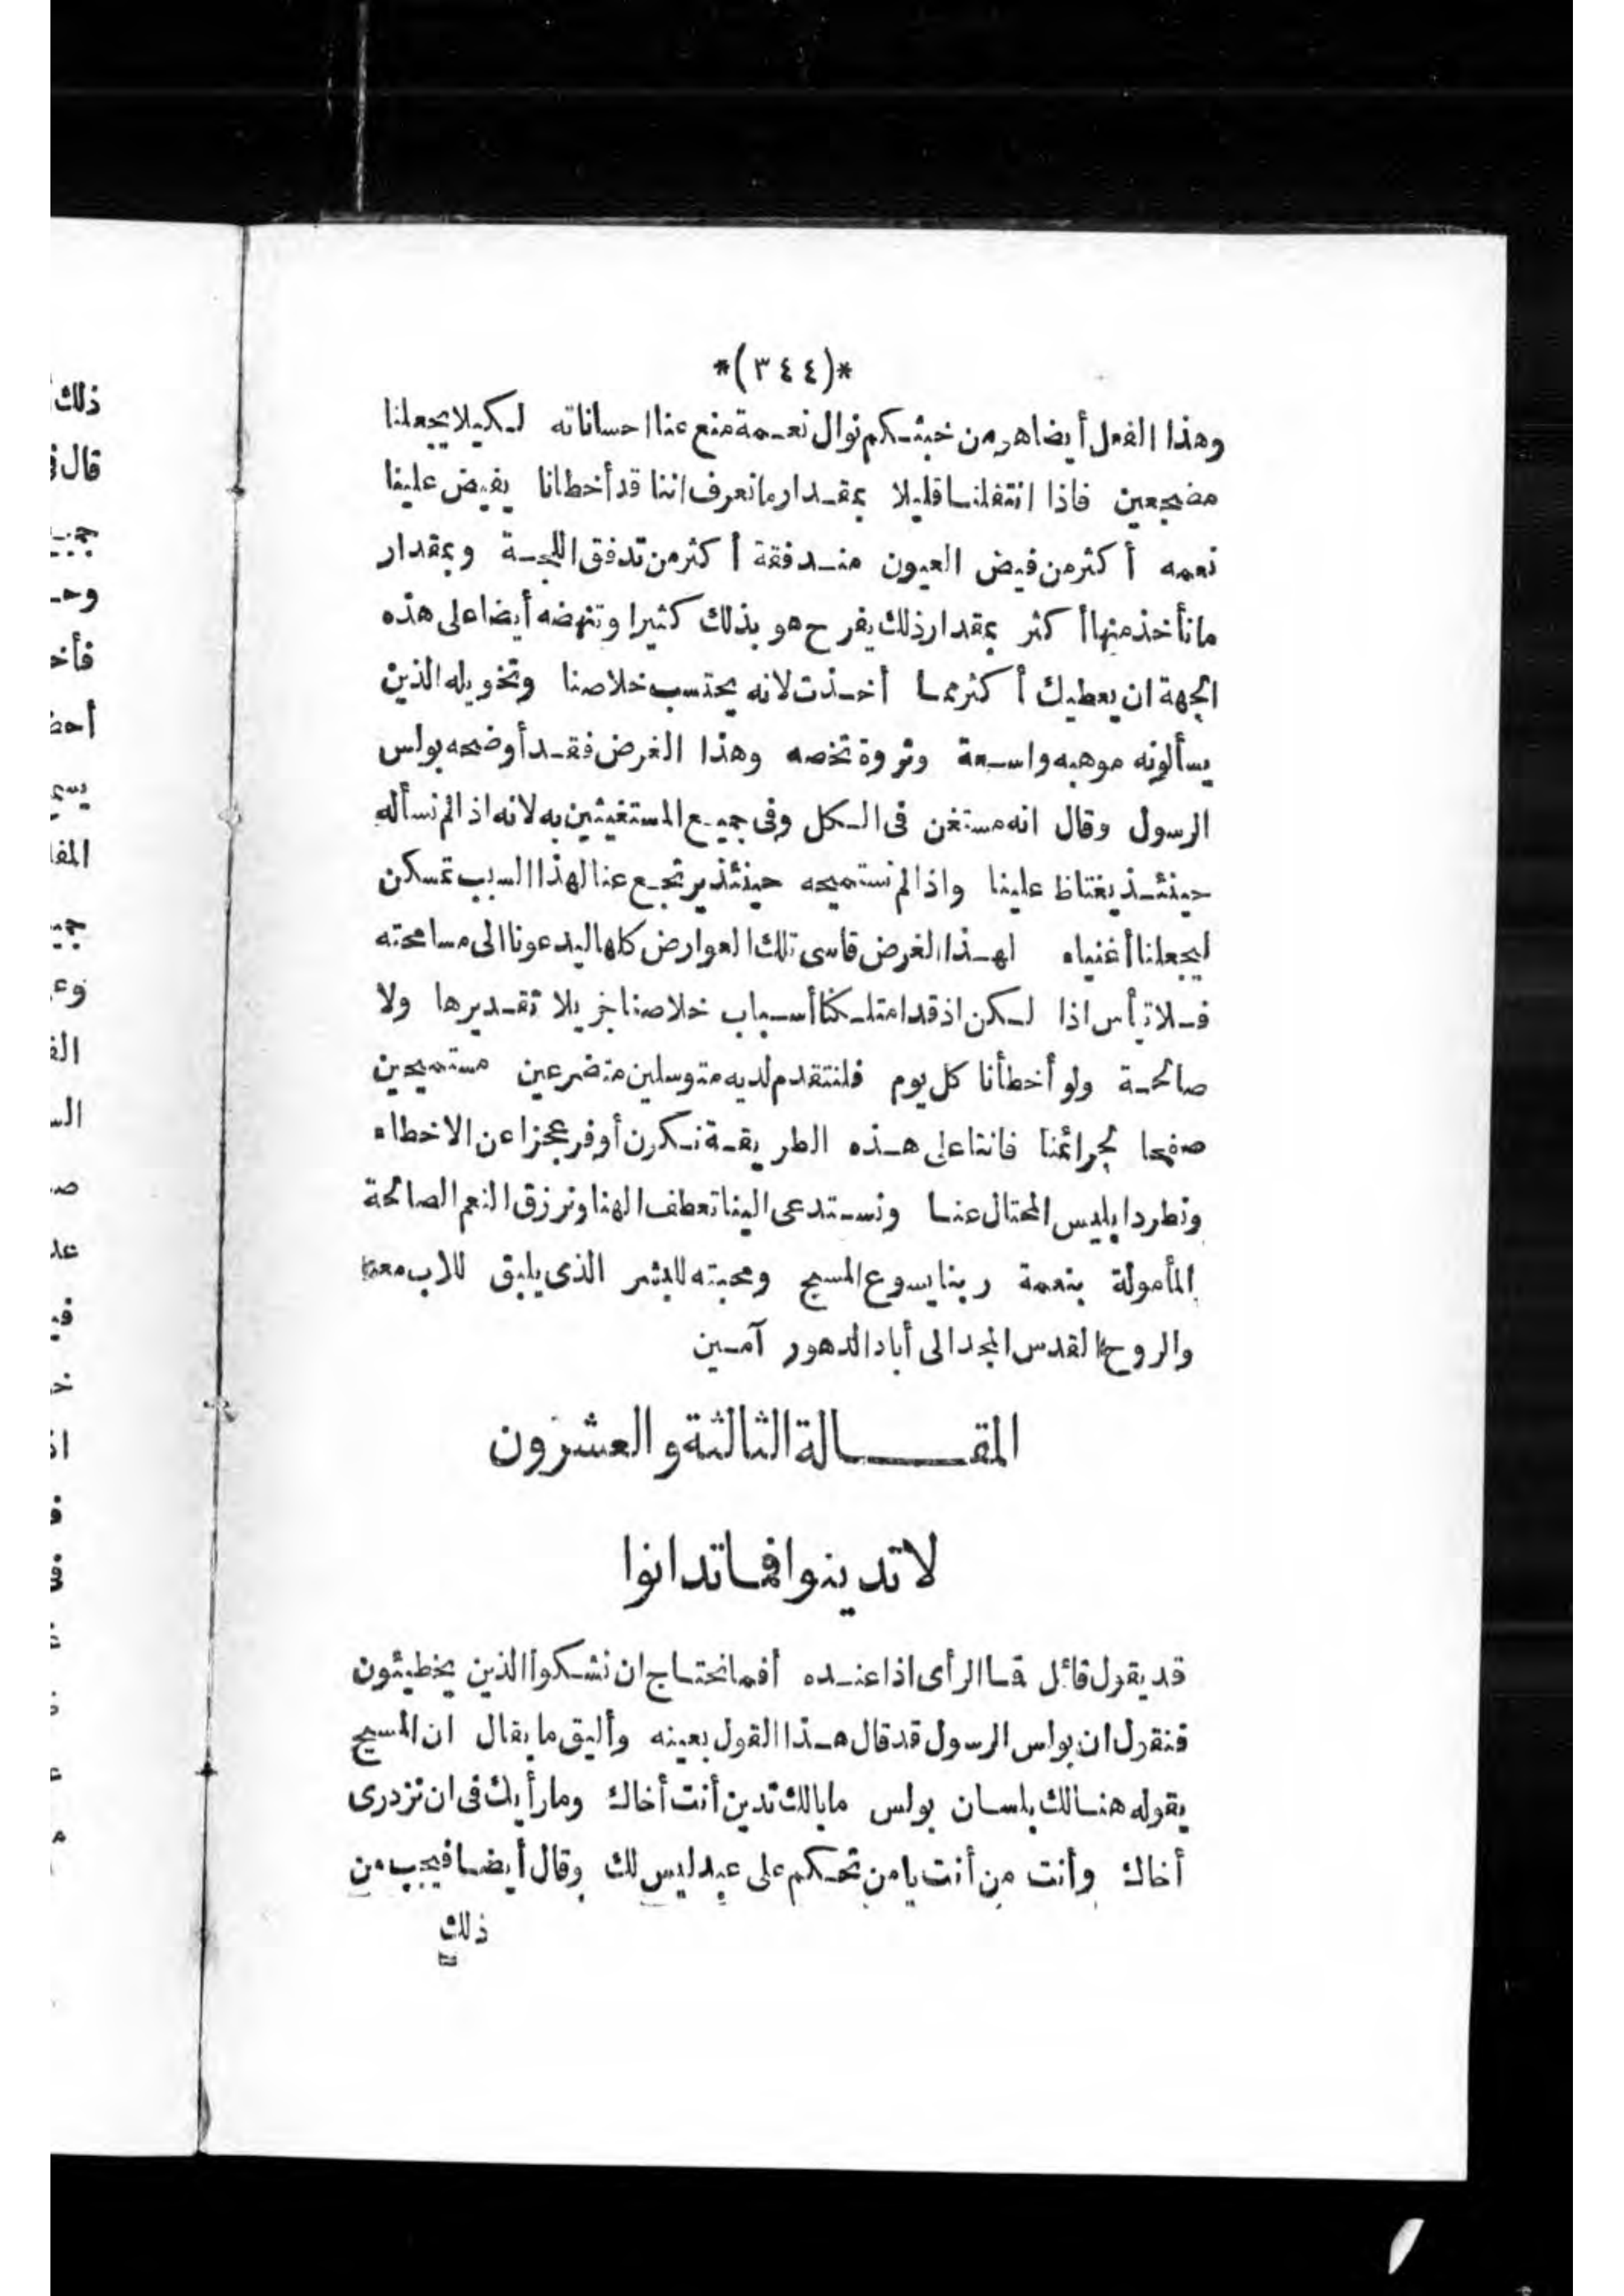 *(٣٤٤)*
وهذا الفعل أيضا هو من خبثكم نوال نعمة منع عنا احساناته لكيلا يجعلنا
مضجعين فاذا انتقلنا قليلا بمقدار ما نعرف اننا قد أخطانا يفيض علينا
نعمه أكثر من فيض العيون مندفقة أكثر من تدفق اللجة وبمقدار
ما نأخذ منها أكثر بمقدار ذلك يفرح هو بذلك كثيرا وتنهضه أيضا على هذه
الجهة ان يعطيك أكثر مما أخذت لانه يحتسب خلاصنا وتخويله الذين
يسألونه موهبه واسعة وثروة تخصه وهذا الغرض فقد أوضحه بولس
الرسول وقال انه مستغن فى الكل وفى جميع المستغيثين به لانه اذا لم نسأله
حينئذ يغتاظ علينا واذا لم نستميحه حينئذ يرتجع عنا لهذا السبب تمسكن
ليجعلنا أغنياء لهذا الغرض قاسى تلك العوارض كلها ليدعونا الى مسامحته
فلا تيأس اذا لكن اذ قد امتلكنا أسباب خلاصنا جزيلا تقديرها ولا
صالحة ولو أخطأنا كل يوم فلنتقدم لديه متوسلين متضرعين مستميحين
صفحا لجرائمنا فاننا على هذه الطريقة نكون أوفر عجزا عن الاخطاء
ونطرد ابليس المحتال عنا ونستدعى الينا تعطف الهنا ونرزق النعم الصالحة
المأمولة بنعمة ربنا يسوع المسيح ومحبته للبشر الذى يليق للاب معه
والروح القدس المجد الى أباد الدهور آمين
المقالة الثالثة والعشرون
لا تدينوا فما تدانوا
قد يقول قائل فما الرأى اذا عنده أفما نحتاج ان نشكوا الذين يخطيئون
فنقول ان بولس الرسول قد قال هذا القول بعينه وأليق ما يقال ان المسيح
يقوله هنالك بلسان بولس ما بالك تدين أنت أخاك وما رأيك فى ان تزدرى
أخاك وأنت من أنت يا من تحكم على عبد ليس لك وقال أيضا فيجب من
ذلك